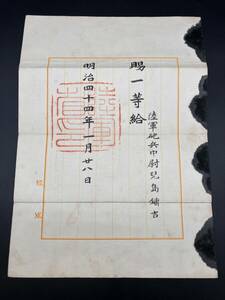 陸軍砲兵中尉兒島鏞吉
賜一等給
明治四十四年一月廿八日